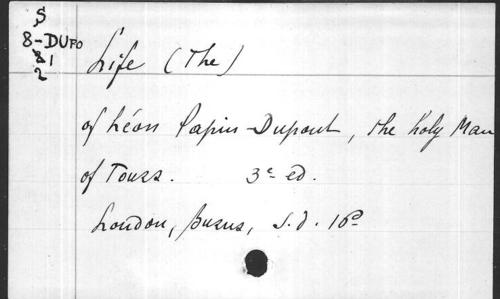 S
8-DUPO
21
2
Life (The)
of Léon Papin-Dupont, the holy Man
of Tours. 3e ed.
London, Burns, s.d. 16°